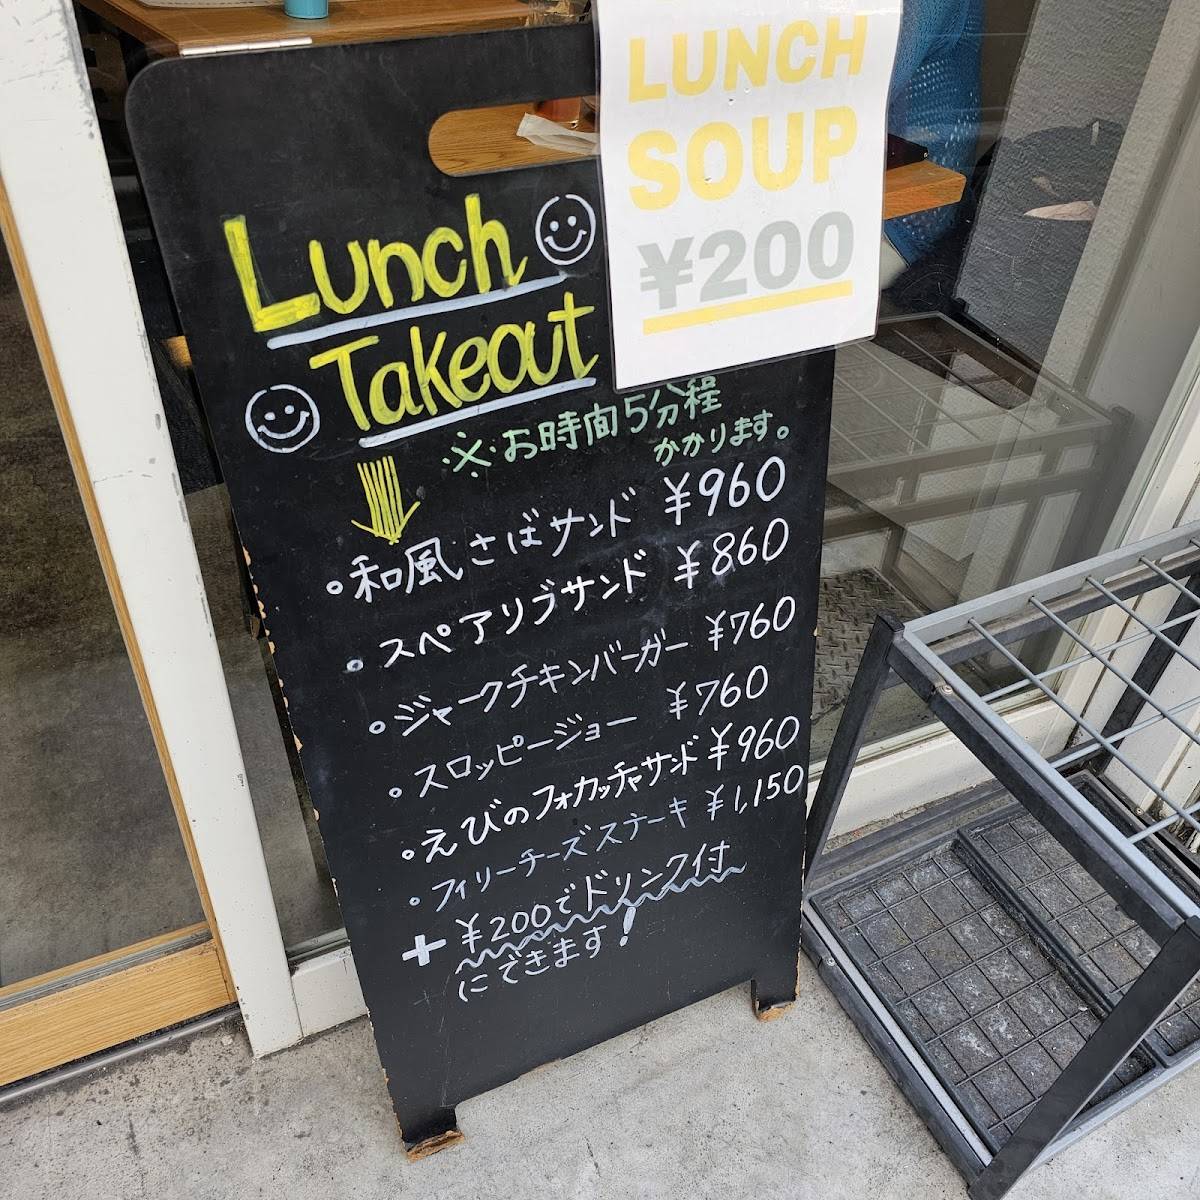 LUNCH
SOUP
¥200
Lunch
Takeout
※お時間5分程
かかります。
・和風さばサンド ¥960
・スペアリブサンド ¥860
・ジャークチキンバーガー ¥760
・スロッピージョー ¥760
・えびのフォカッチャサンド ¥960
・フィリーチーズステーキ ¥1,150
+ ¥200でドリンク付
にできます!